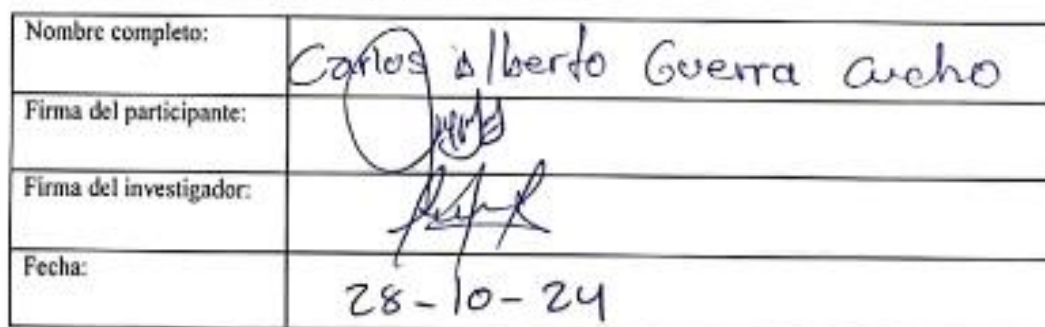 Nombre completo: Carlos Alberto Guerra Cucho
Firma del participante:
Firma del investigador:
Fecha: 28-10-24